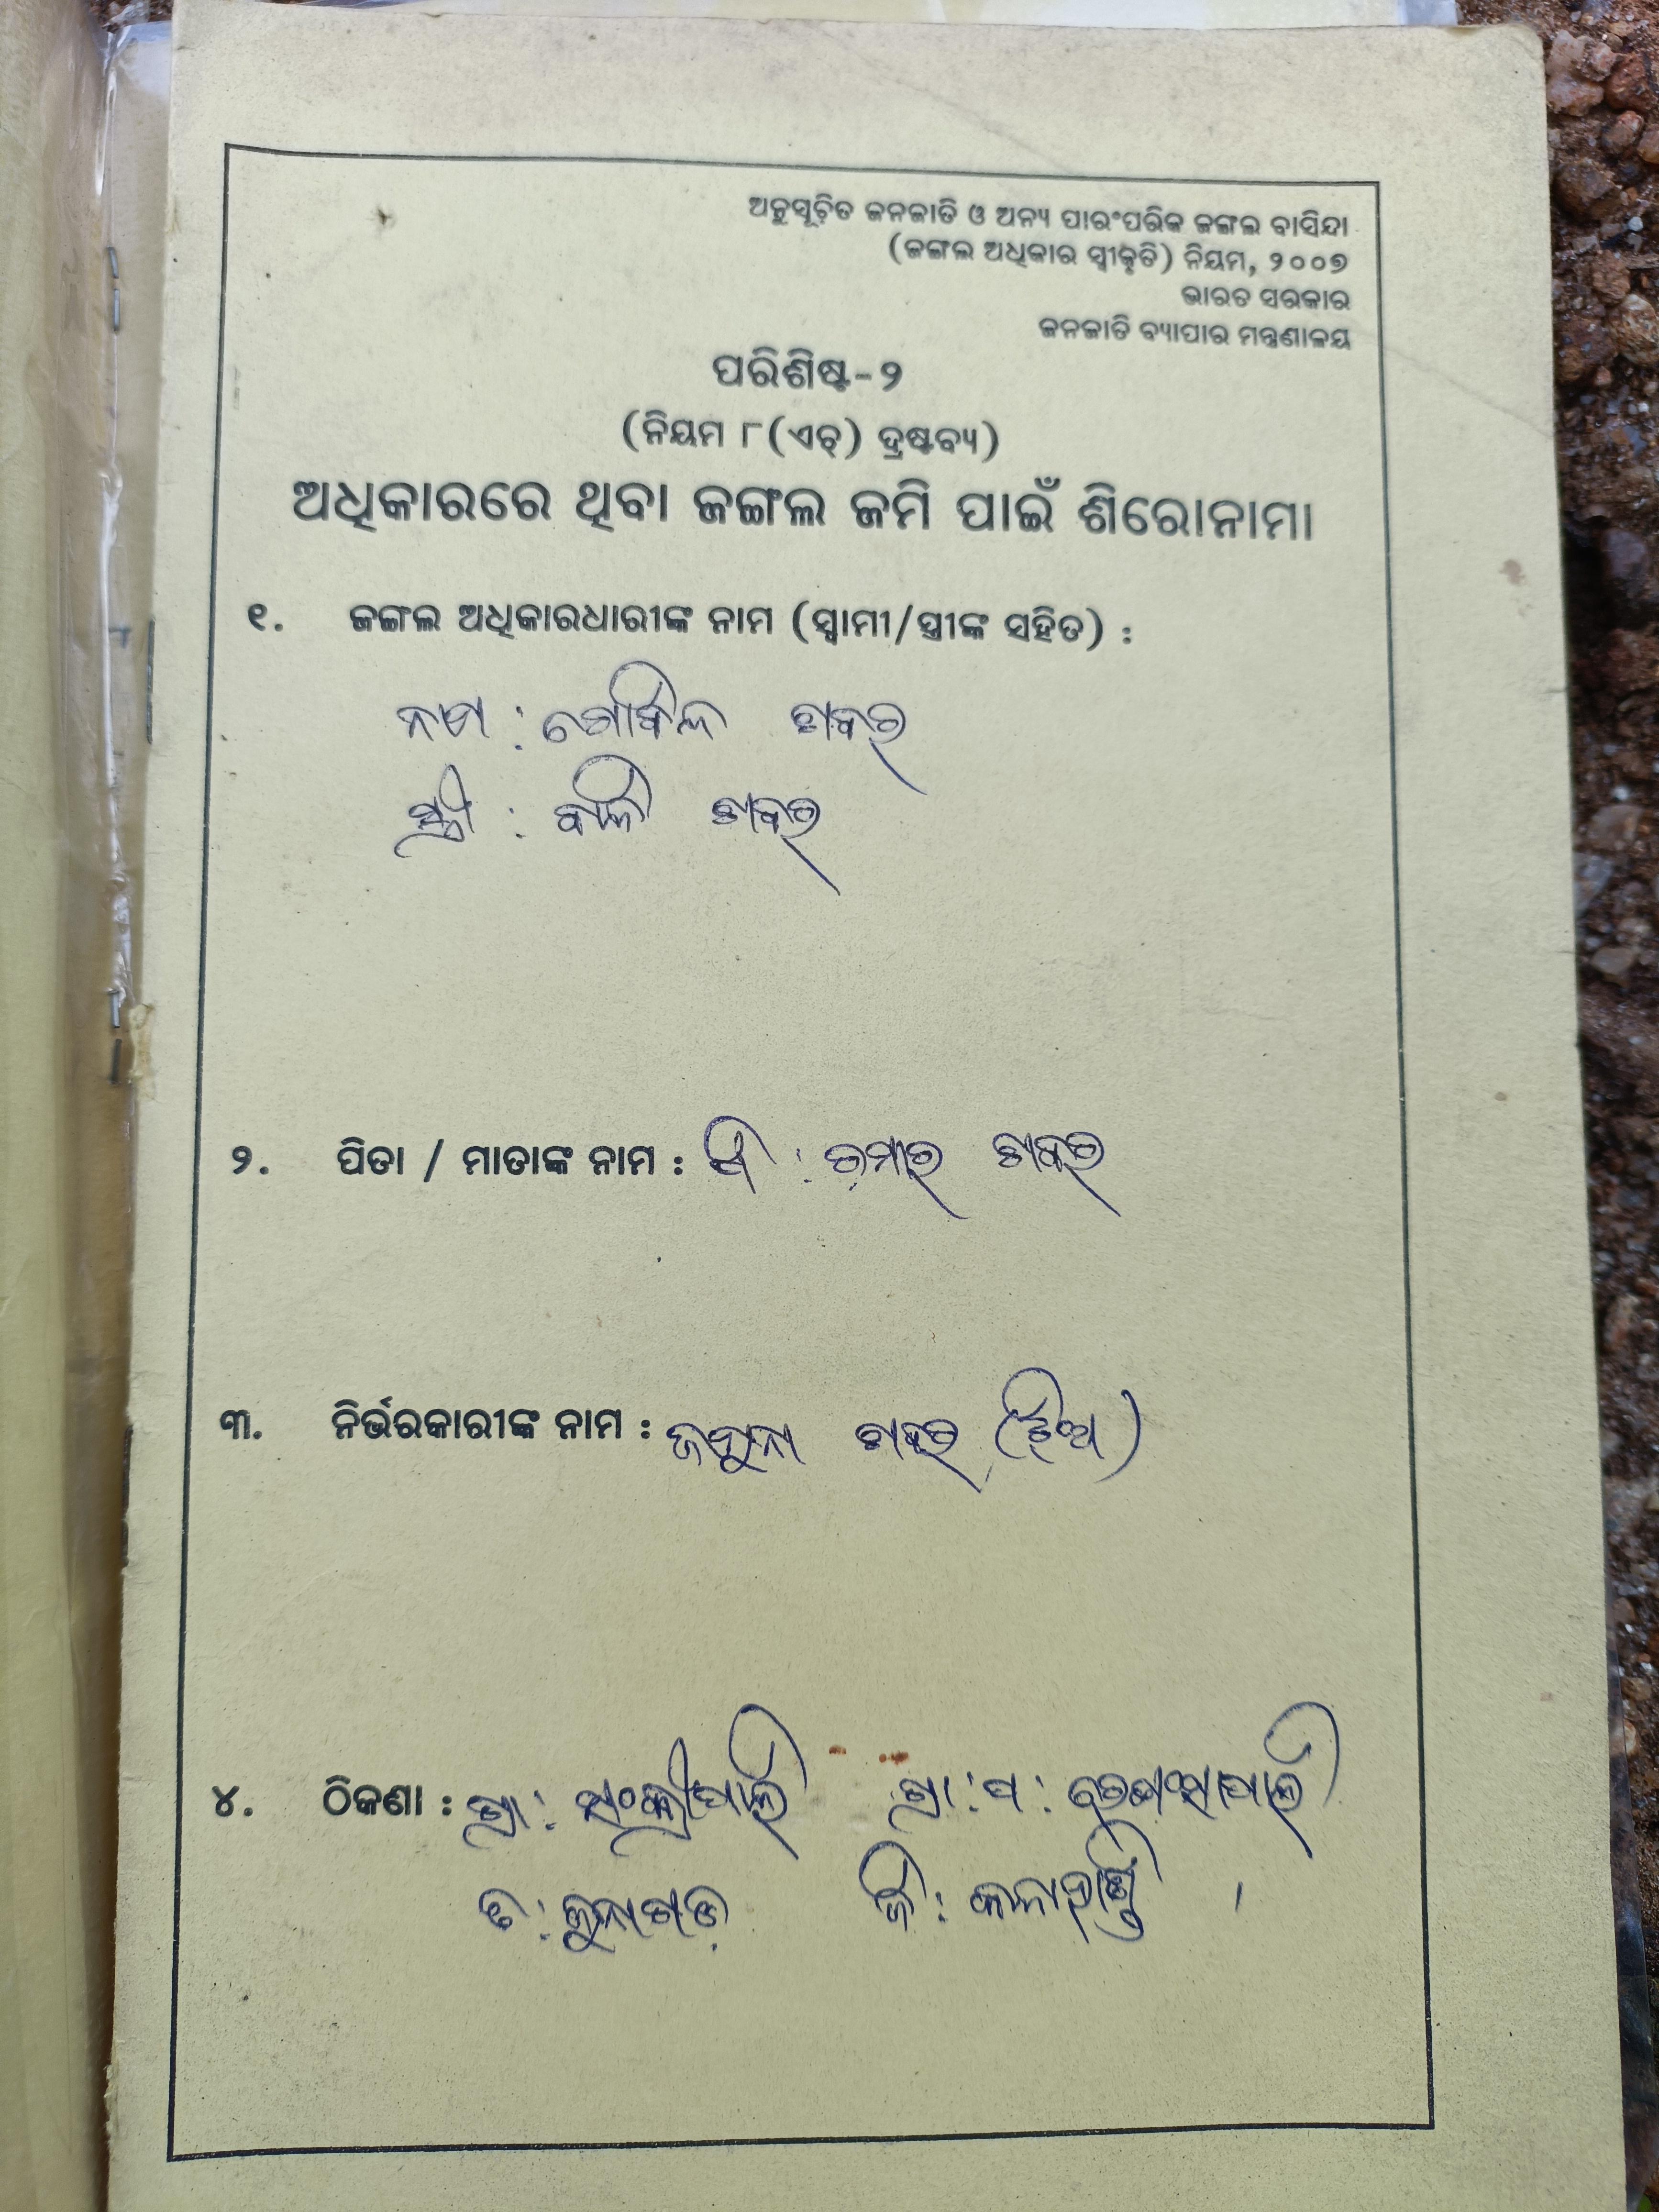 ଅନୁସୂଚିତ ଜନଜାତି ଓ ଅନ୍ୟ ପାରଂପରିକ ଜଙ୍ଗଲ ବାସିନ୍ଦା
(ଜଙ୍ଗଲ ଅଧିକାର ସ୍ୱୀକୃତି) ନିୟମ, ୨୦୦୭
ଭାରତ ସରକାର
ଜନଜାତି ବ୍ୟାପାର ମନ୍ତ୍ରଣାଳୟ
ପରିଶିଷ୍ଟ-୨
(ନିୟମ ୮(ଏଚ୍) ଦ୍ରଷ୍ଟବ୍ୟ)
ଅଧିକାରରେ ଥିବା ଜଙ୍ଗଲ ଜମି ପାଇଁ ଶିରୋନାମା
୧. ଜଙ୍ଗଲ ଅଧିକାରଧାରୀଙ୍କ ନାମ (ସ୍ୱାମୀ/ସ୍ତ୍ରୀଙ୍କ ସହିତ) :
ନାମ : ଗୋବିନ୍ଦ ଶବର
ସ୍ତ୍ରୀ : ବାଳି ଶବର
୨. ପିତା / ମାତାଙ୍କ ନାମ : ପି :
୩. ନିର୍ଭରକାରୀଙ୍କ ନାମ : ଜମୁନା (ଝିଅ)
୪. ଠିକଣା : ଗ୍ରା : ଗ୍ରା : ପ :
ତ : ଜୁନାଗଡ଼ ଜି : କଳାହାଣ୍ଡି